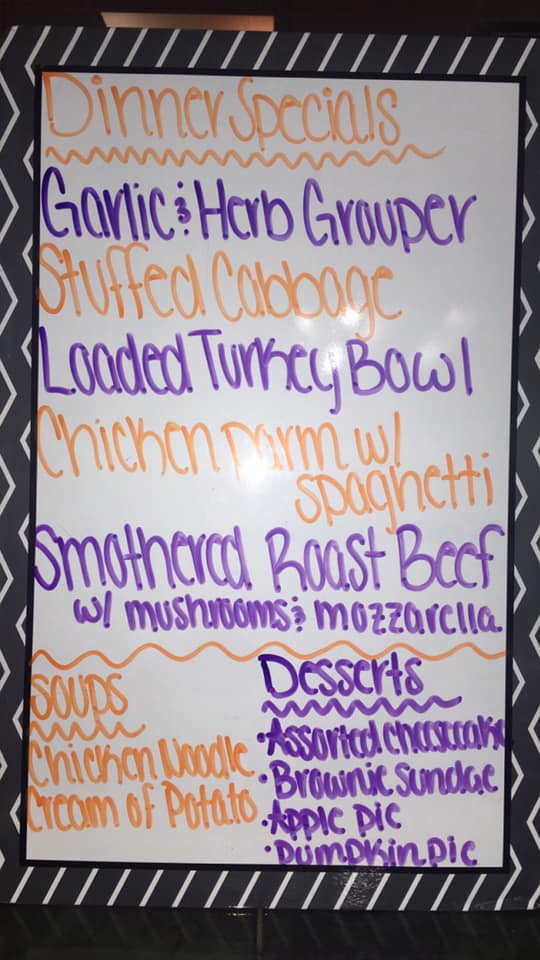 Dinner Specials
Garlic & Herb Grouper
Stuffed Cabbage
Loaded Turkey Bowl
Chicken parm w/
spaghetti
Smothered Roast Beef
w/ mushrooms & mozzarella
Soups
Chicken Noodle
Cream of Potato
Desserts
•Assorted cheesecake
•Brownie Sundae
•Apple pie
•Pumpkin pie